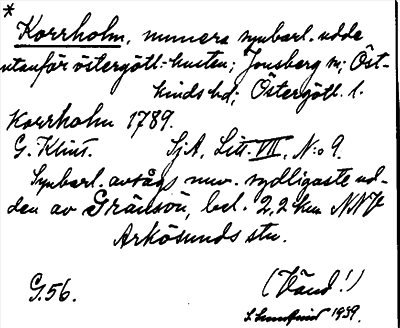 *
Korrholm, numera synbarl. udde
utanför östergötl. kusten; Jonsberg sn; Öst-
kinds hd; Östergötl. l.
Korrholm 1789.
G. Klint. SjA, Litt. VII, N:o 9.
Synbarl. avsågs nuv. sydligaste ud-
den av Gränsön, bel. 2,2 km NNV
Arkösunds stn.
G.56. (Vänd!)
1939.